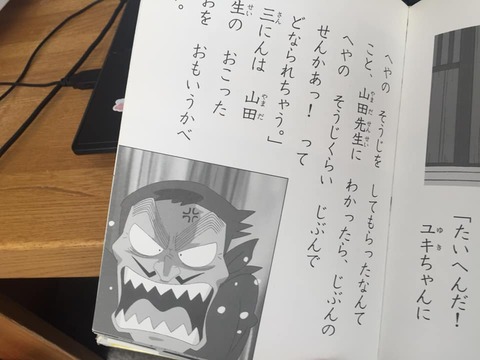 「たいへんだ!
ユキちゃんに
へやの そうじを してもらったなんて
こと、山田先生に わかったら、じぶんの
へやの そうじくらい じぶんで
せんかあっ! って
どなられちゃう。」
三にんは 山田
生の おこった
おを おもいうかべ